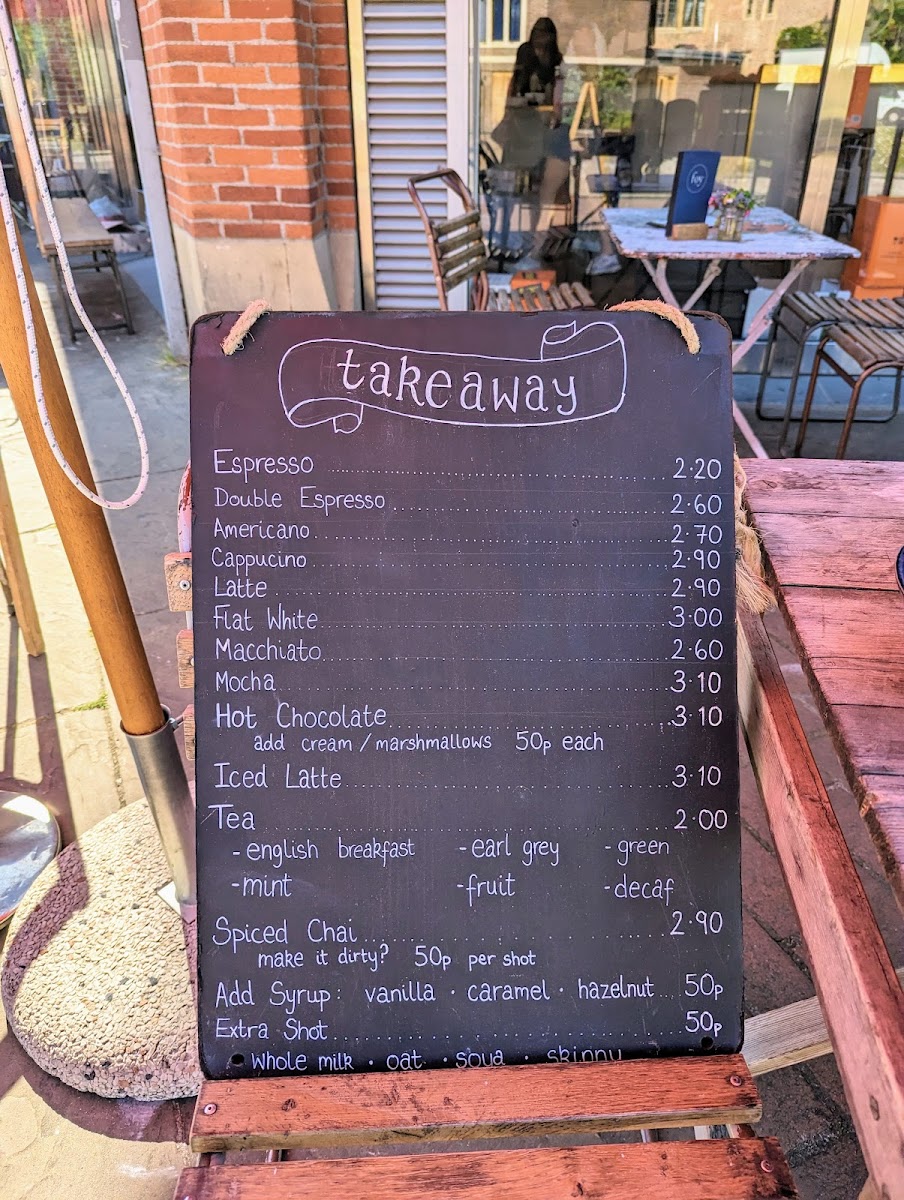 takeaway
Espresso 2.20
Double Espresso 2.60
Americano 2.70
Cappucino 2.90
Latte 2.90
Flat White 3.00
Macchiato 2.60
Mocha 3.10
Hot Chocolate 3.10
add cream / marshmallows 50p each
Iced Latte 3.10
Tea 2.00
- english breakfast - earl grey - green
- mint - fruit - decaf
Spiced Chai 2.90
make it dirty? 50p per shot
Add Syrup: vanilla · caramel · hazelnut 50p
Extra Shot 50p
Whole milk · oat · soya · skinny